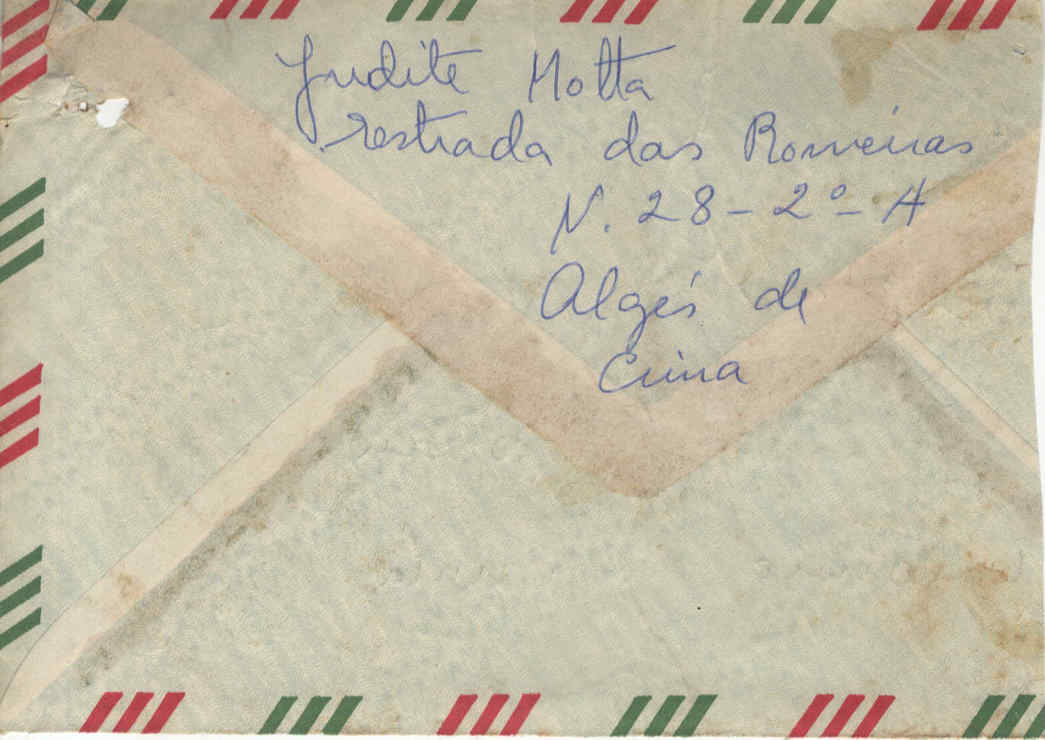 Judite Motta
restrada das Romeiras
N. 28 - 2º - A
Algés de
Cima